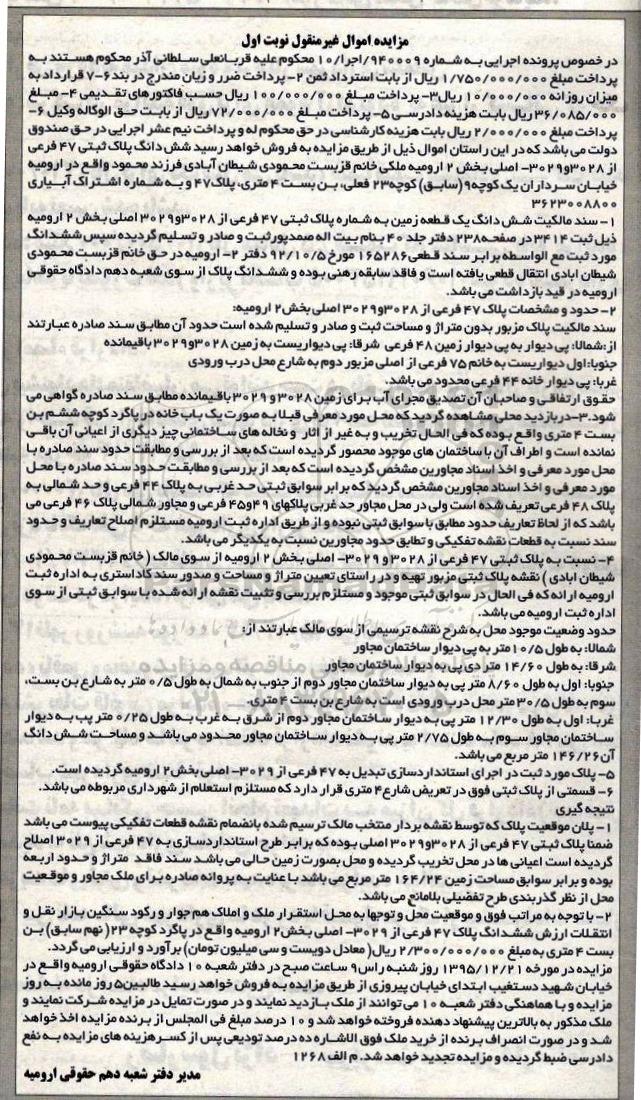 مزایده اموال غیرمنقول نوبت اول
در خصوص پرونده اجرایی به شماره ۹۴۰۰۰۹/اجرا/۱۰ محکوم علیه قربانعلی سلطانی آذر محکوم هستند به
پرداخت مبلغ ۱/۷۵۰/۰۰۰/۰۰۰ ریال از بابت استرداد ثمن ۲- پرداخت ضرر و زیان مندرج در بند ۶-۷ قرارداد به
میزان روزانه ۱۰/۰۰۰/۰۰۰ ریال ۳- پرداخت مبلغ ۱۰۰/۰۰۰/۰۰۰ ریال حسب فاکتورهای تقدیمی ۴- مبلغ
۳۶/۰۸۵/۰۰۰ ریال بابت هزینه دادرسی ۵- پرداخت مبلغ ۷۲/۰۰۰/۰۰۰ ریال از بابت حق الوکاله وکیل ۶-
پرداخت مبلغ ۲/۰۰۰/۰۰۰ ریال بابت هزینه کارشناسی در حق محکوم له و پرداخت نیم عشر اجرایی در حق صندوق
دولت می باشد که در این راستان اموال ذیل از طریق مزایده به فروش خواهد رسید شش دانگ پلاک ثبتی ۴۷ فرعی
از ۳۰۲۸و۳۰۲۹- اصلی بخش ۲ ارومیه ملکی خانم قزبست محمودی شیطان آبادی فرزند محمود واقع در ارومیه
خیابان سرداران یک کوچه۹ (سابق) کوچه۲۳ فعلی، بن بست ۴ متری، پلاک۴۷ و به شماره اشتراک آبیاری
۳۶۲۳۰۰۸۸۰۰
۱- سند مالکیت شش دانگ یک قطعه زمین به شماره پلاک ثبتی ۴۷ فرعی از ۳۰۲۸و۳۰۲۹ اصلی بخش ۲ ارومیه
ذیل ثبت ۳۴۱۴ در صفحه۲۳۸ دفتر جلد ۴۰ بنام بیت اله صمدپور ثبت و صادر و تسلیم گردیده سپس ششدانگ
مورد ثبت مع الواسطه برابر سند قطعی۱۶۵۲۸۶ مورخ ۹۲/۱۰/۵ دفتر ۲- ارومیه در حق خانم قزبست محمودی
شیطان ابادی انتقال قطعی یافته است و فاقد سابقه رهنی بوده و ششدانگ پلاک از سوی شعبه دهم دادگاه حقوقی
ارومیه در قید بازداشت می باشد.
۲- حدود و مشخصات پلاک ۴۷ فرعی از ۳۰۲۸و۳۰۲۹ اصلی بخش۲ ارومیه:
سند مالکیت پلاک مزبور بدون متراژ و مساحت ثبت و صادر و تسلیم شده است حدود آن مطابق سند صادره عبارتند
از:شمالا: پی دیوار به پی دیوار زمین ۴۸ فرعی شرقا: پی دیواریست به زمین ۳۰۲۸و۳۰۲۹ باقیمانده
جنوبا:اول دیواریست به خانم ۷۵ فرعی از اصلی مزبور دوم به شارع محل درب ورودی
غربا: پی دیوار خانه ۴۴ فرعی محدود می باشد.
حقوق ارتفاقی و صاحبان آن تصدیق مجرای آب برای زمین ۳۰۲۸و۳۰۲۹ باقیمانده مطابق سند صادره گواهی می
شود.۳-دربازدید محلی مشاهده گردید که محل مورد معرفی قبلا به صورت یک باب خانه در پاگرد کوچه ششم بن
بست ۴ متری واقع بوده که فی الحال تخریب و به غیر از آثار و نخاله های ساختمانی چیز دیگری از اعیانی آن باقی
نمانده است و اطراف آن با ساختمان های موجود محصور گردیده است که بعد از بررسی و مطابقت حدود سند صادره با
محل مورد معرفی و اخذ اسناد مجاورین مشخص گردیده است که بعد از بررسی و مطابقت حدود سند صادره با محل
مورد معرفی و اخذ اسناد مجاورین مشخص گردید که برابر سوابق ثبتی حد غربی به پلاک ۴۴ فرعی و حد شمالی به
پلاک ۴۸ فرعی تعریف شده است ولی در محل مجاور حد غربی پلاکهای ۴۹و۴۵ فرعی و مجاور شمالی پلاک ۴۶ فرعی می
باشد که از لحاظ تعاریف حدود مطابق با سوابق ثبتی نبوده و از طریق اداره ثبت ارومیه مستلزم اصلاح تعاریف و حدود
سند نسبت به قطعات نقشه تفکیکی و تطابق حدود مجاورین نسبت به یکدیگر می باشد.
۴- نسبت به پلاک ثبتی ۴۷ فرعی از ۳۰۲۸و۳۰۲۹- اصلی بخش ۲ ارومیه از سوی مالک (خانم قزبست محمودی
شیطان ابادی) نقشه پلاک ثبتی مزبور تهیه و در راستای تعیین متراژ و مساحت و صدور سند کاداستری به اداره ثبت
ارومیه ارائه که فی الحال در سوابق ثبتی موجود و مستلزم بررسی و تثبیت نقشه ارائه شده با سوابق ثبتی از سوی
اداره ثبت ارومیه می باشد.
حدود وضعیت موجود محل به شرح نقشه ترسیمی از سوی مالک عبارتند از:
شمالا: به طول ۱۰/۵متر به پی دیوار ساختمان مجاور
شرقا: به طول ۱۴/۶۰ متر دی پی به دیوار ساختمان مجاور
جنوبا: اول به طول ۸/۶۰ متر پی به دیوار ساختمان مجاور دوم از جنوب به شمال به طول ۰/۵ متر به شارع بن بست،
سوم به طول ۳۰/۵ متر محل درب ورودی است به شارع بن بست ۴ متری.
غربا: اول به طول ۱۲/۳۰ متر پی به دیوار ساختمان مجاور دوم از شرق به غرب به طول ۰/۲۵ متر پب به دیوار
ساختمان مجاور سوم به طول ۲/۷۵ متر پی به دیوار ساختمان مجاور محدود می باشد و مساحت شش دانگ
آن ۱۴۶/۲۶ متر مربع می باشد.
۵- پلاک مورد ثبت در اجرای استانداردسازی تبدیل به ۴۷ فرعی از ۳۰۲۹- اصلی بخش۲ ارومیه گردیده است.
۶- قسمتی از پلاک ثبتی فوق در تعریض شارع ۴ متری قرار دارد که مستلزم استعلام از شهرداری مربوطه می باشد.
نتیجه گیری
۱- پلان موقعیت پلاک که توسط نقشه بردار منتخب مالک ترسیم شده بانضمام نقشه قطعات تفکیکی پیوست می باشد
ضمنا پلاک ثبتی ۴۷ فرعی از ۳۰۲۸و۳۰۲۹ اصلی بوده که برابر طرح استانداردسازی به ۴۷ فرعی از ۳۰۲۹ اصلاح
گردیده است اعیانی ها در محل تخریب گردیده و محل بصورت زمین خالی می باشد سند فاقد متراژ و حدود اربعه
بوده و برابر سوابق مساحت زمین ۱۶۴/۲۴ متر مربع می باشد با عنایت به پروانه صادره برای ملک مجاور و موقعیت
محل از نظر گذربندی طرح تفضیلی بلامانع می باشد.
۲- با توجه به مراتب فوق و موقعیت محل و توجها به محل استقرار ملک و املاک هم جوار و رکود سنگین بازار نقل و
انتقالات ارزش ششدانگ پلاک ۴۷ فرعی از ۳۰۲۹- اصلی بخش۲ ارومیه واقع در پاگرد کوچه ۲۳ (نهم سابق) بن
بست ۴ متری به مبلغ ۲/۳۰۰/۰۰۰/۰۰۰ ریال( معادل دویست و سی میلیون تومان) برآورد و ارزیابی می گردد.
مزایده در مورخه ۱۳۹۵/۱۲/۲۱ روز شنبه راس۹ ساعت صبح در دفتر شعبه ۱۰ دادگاه حقوقی ارومیه واقع در
خیابان شهید دستغیب ابتدای خیابان پیروزی از طریق مزایده به فروش خواهد رسید طالبین۵ روز مانده به روز
مزایده و با هماهنگی دفتر شعبه ۱۰ می توانند از ملک بازدید نمایند و در صورت تمایل در مزایده شرکت نمایند و
ملک مذکور به بالاترین پیشنهاد دهنده فروخته خواهد شد و ۱۰ درصد مبلغ فی المجلس از برنده مزایده اخذ خواهد
شد و در صورت انصراف برنده از خرید ملک فوق الاشاره ده درصد تودیعی پس از کسر هزینه های مزایده به نفع
دادرسی ضبط گردیده و مزایده تجدید خواهد شد. م الف ۱۲۶۸
مدیر دفتر شعبه دهم حقوقی ارومیه